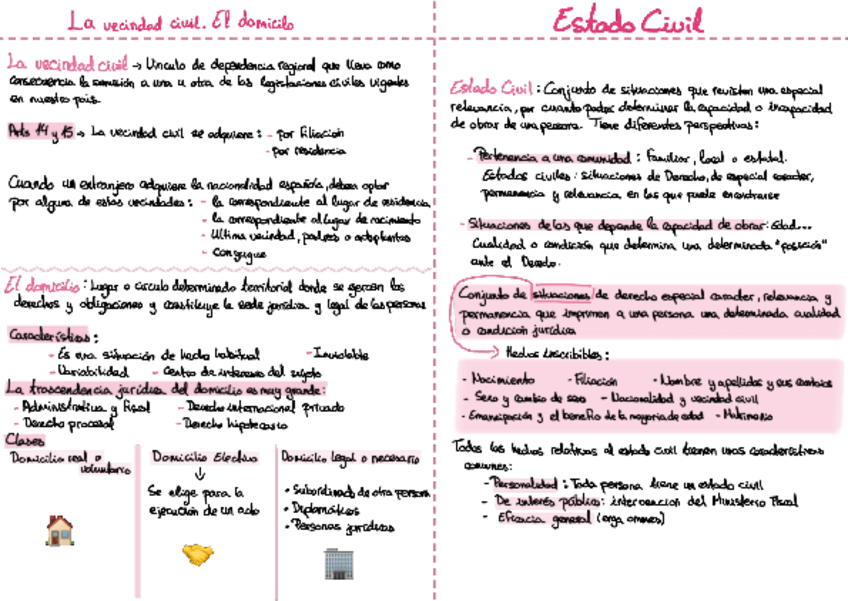 La vecindad civil. El domicilo
La vecindad civil → Vínculo de dependencia regional que lleva como
consecuencia la sumisión a una u otra de las legislaciones civiles vigentes
en nuestro país.
Arts 14 y 15 → La vecindad civil se adquiere: - por Filiación
- por residencia
Cuando un extranjero adquiere la nacionalidad española, deben optar
por alguna de estas vecindades: - la correspondiente al lugar de residencia
- la correspondiente al lugar de nacimiento
- Ultima vecindad, padres o adoptantes
- Conyugue
El domicilio: Lugar o circulo determinado territorial donde se ejercen los
derechos y obligaciones y constituye la sede jurídica y legal de las personas
Características:
- Es una situación de hecho habitual - Inviolable
- Variabilidad - Centro de intereses del sujeto
La trascendencia jurídica del domicilio es muy grande:
- Administrativa y Fiscal - Derecho internacional privado
- Derecho procesal - Derecho hipotecario
Clases
Domicilio real o
voluntario
Domicilio Electivo
↓
Se elige para la
ejecución de un acto
Domicilio legal o necesario
• Subordinado de otra persona
• Diplomáticos
• Personas jurídicas
Estado Civil
Estado Civil: Conjunto de situaciones que revisten una especial
relevancia, por cuanto puedes determinar la capacidad o incapacidad
de obrar de una persona. Tiene diferentes perspectivas:
- Pertenencia a una comunidad: Familiar, local o estatal.
Estados civiles: situaciones de Derecho, de especial caracter,
permanencia y relevancia en las que puede encontrarse
- Situaciones de las que depende la capacidad de obrar: edad...
Cualidad o condición que determina una determinada "posición"
ante el Derecho.
Conjunto de situaciones de derecho especial caracter, relevancia y
permanencia que imprimen a una persona una determinada cualidad
o condición jurídica
→ Hechos inscribibles:
- Nacimiento - Filiación - Nombre y apellidos y sus cambios
- Sexo y cambio de sexo - Nacionalidad y vecindad civil
- Emancipación y el beneficio de la mayoría de edad - Matrimonio
Todos los hechos relativos al estado civil tienen unas características
comunes:
- Personalidad: Toda persona tiene un estado civil
- De interés público: intervencion del Ministerio Fiscal
- Eficacia general (erga omnes)